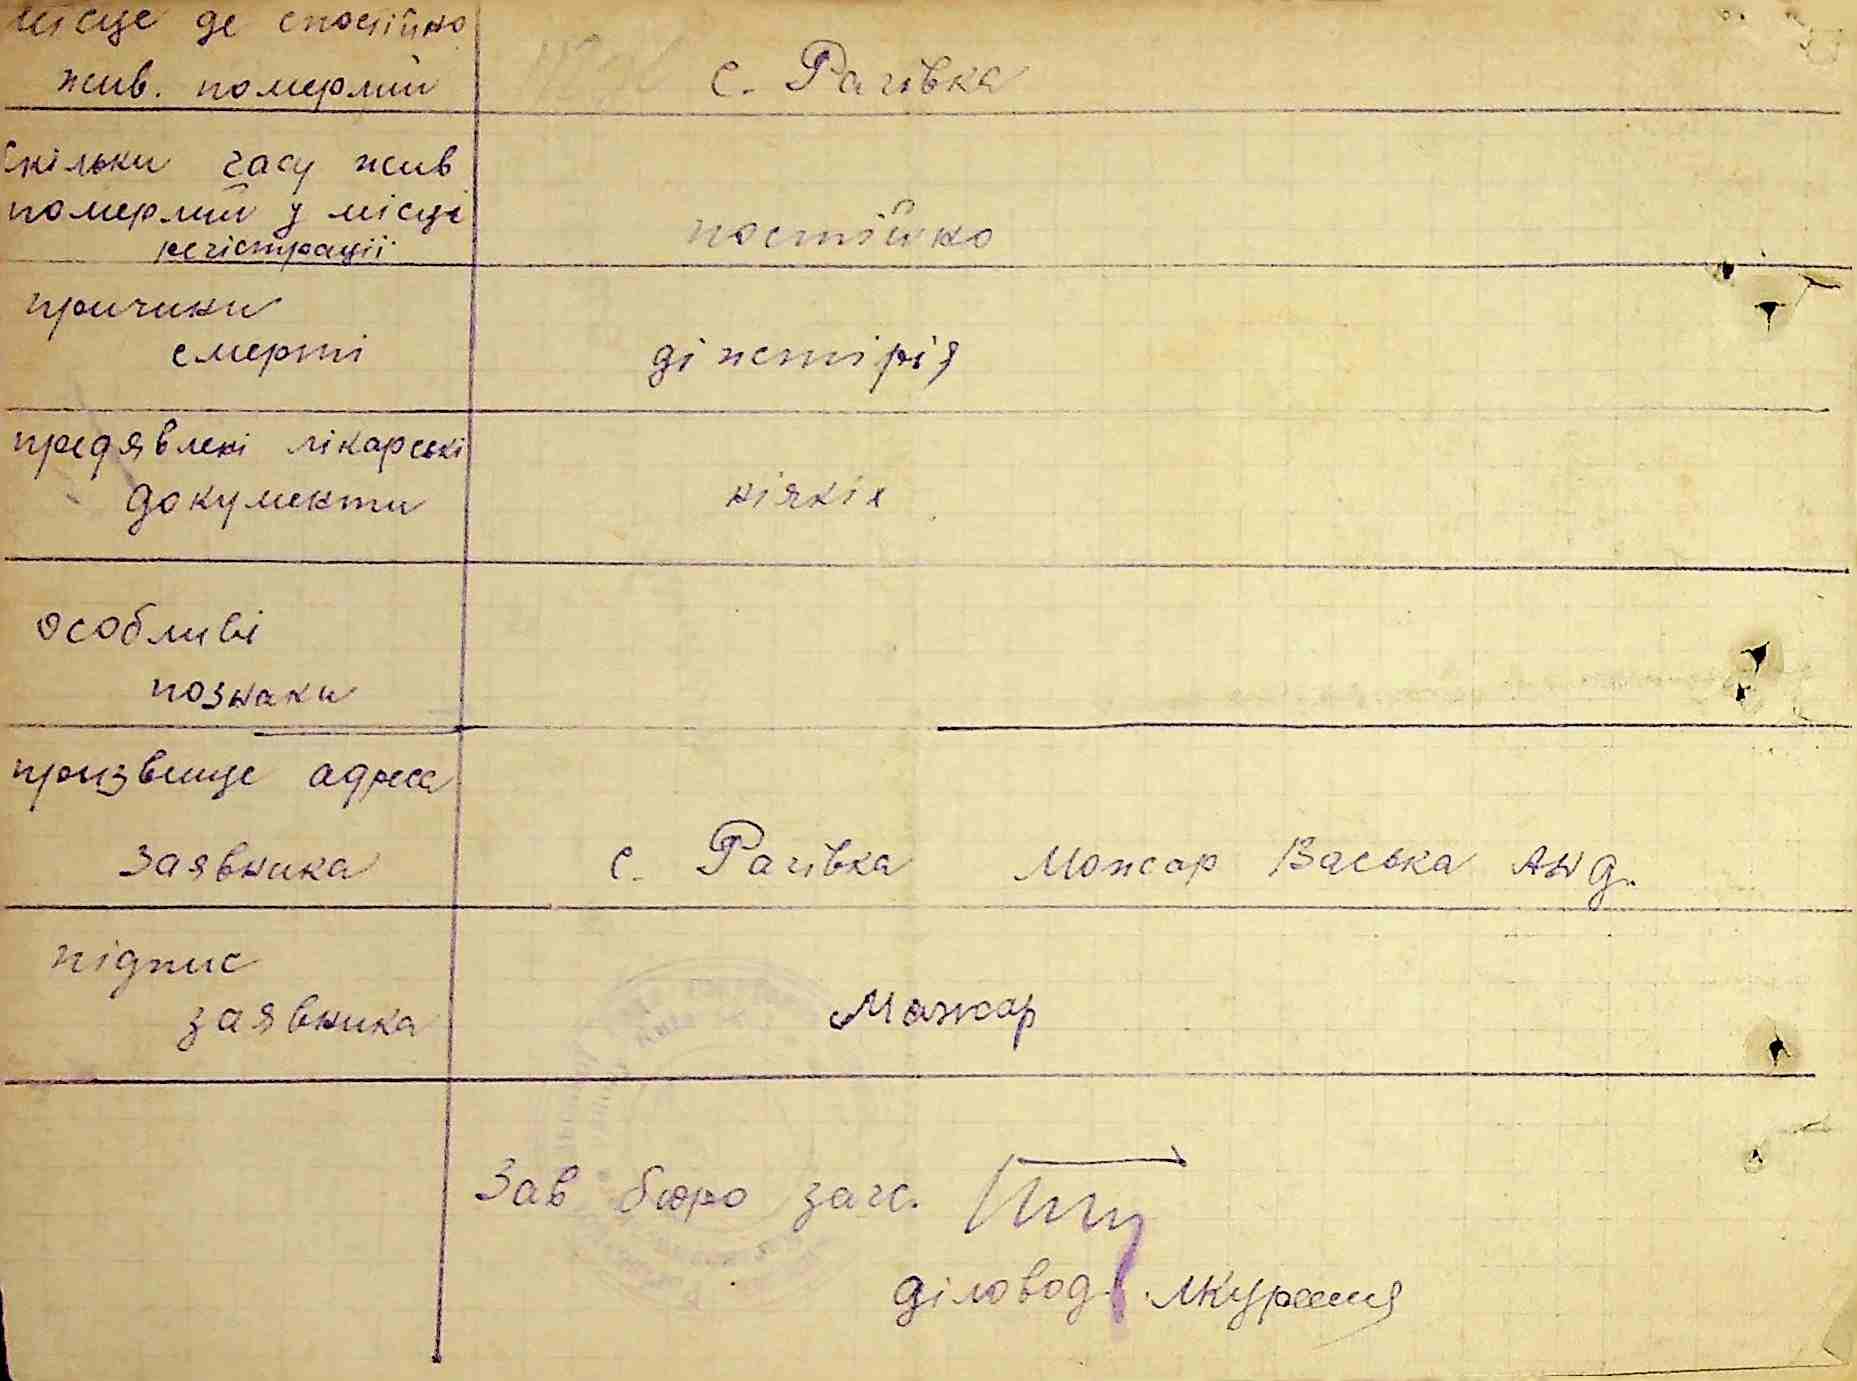 місце де спостійно
жив. помермий
с. Рагівка
скільки часу жив
помермий у місці
регістрації
постійно
причини
смерті
діжстірія
предявлені лікарські
документи
ніякіх
особливі
познаки
призвище адреса
заявника
с. Рагівка Можар Васька Анд.
підпис
заявника
Можар
Зав бюро загс.
діловод